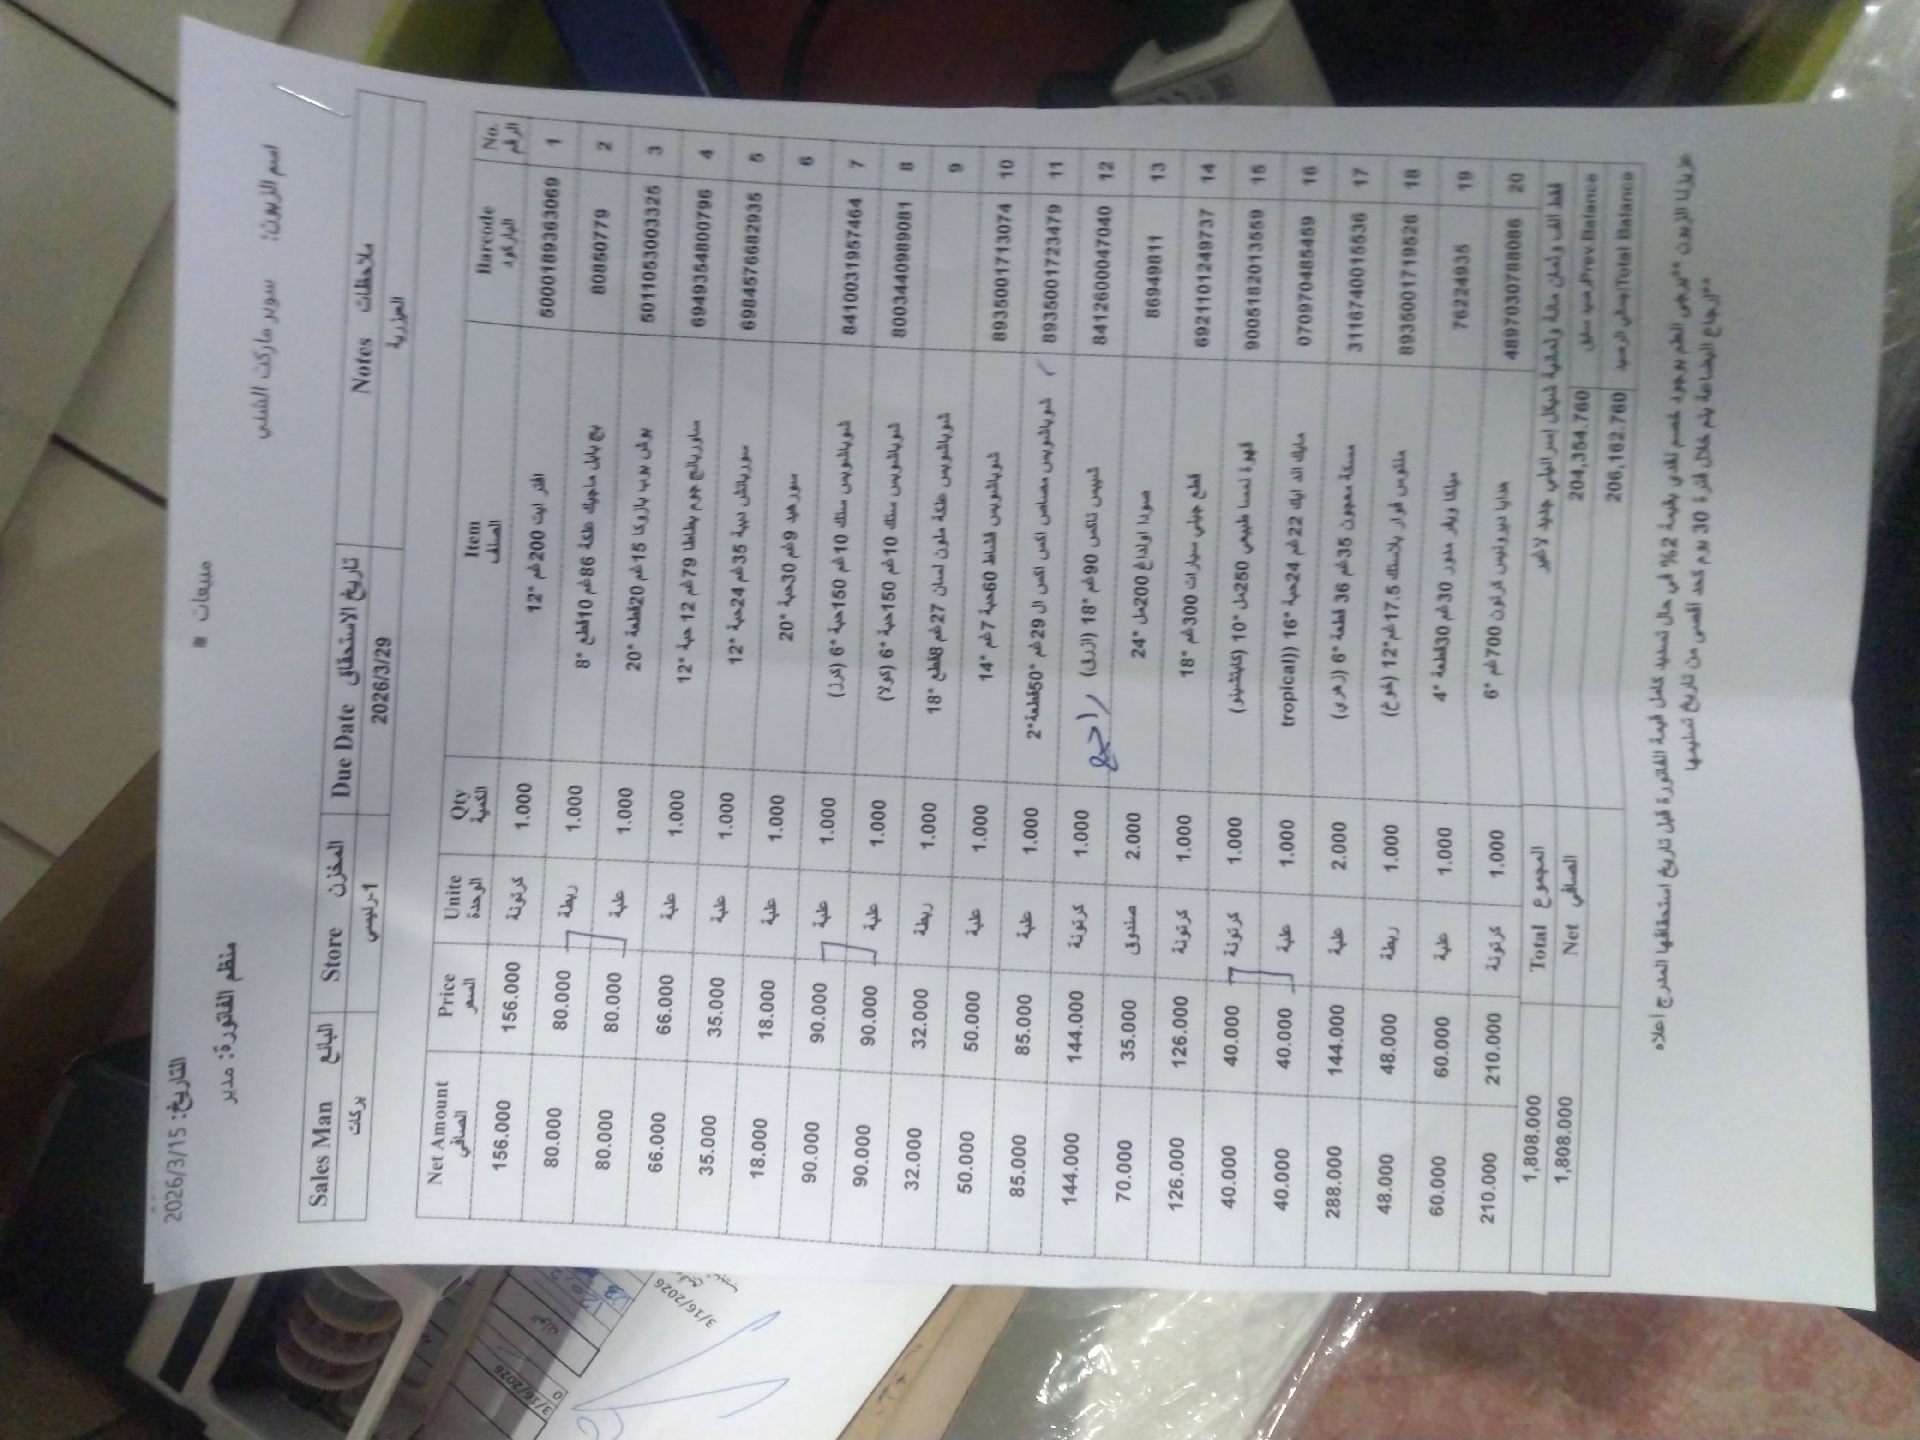 التاريخ: 2026/3/15
مبيعات #
اسم الزبون: سوبر ماركت الشلبي
منظم الفاتورة: مدير
Notes ملاحظات | Due Date تاريخ الاستحقاق | Store المخزن | Sales Man البائع
العيزرية | 2026/3/29 | 1-رئيسي | بركات
No. الرقم | Barcode الباركود | Item الصنف | Qty الكمية | Unite الوحدة | Price السعر | Net Amount الصافي
1 | 5000189363069 | افتر ايت 200غم *12 | 1.000 | كرتونة | 156.000 | 156.000
2 | 80850779 | بج بابل ماجيك علكة 86غم 10قطع *8 | 1.000 | ربطة | 80.000 | 80.000
3 | 5011053003325 | بوش بوب بازوكا 15غم 20قطعة *20 | 1.000 | علبة | 80.000 | 80.000
4 | 6949354800796 | ساور بانج جوم بطاطا 79غم 12 حبة *12 | 1.000 | علبة | 66.000 | 66.000
5 | 6984576682935 | 35غم 24حبة *12 | 1.000 | علبة | 35.000 | 35.000
6 | سور هيد 9غم 30حبة *20 | 1.000 | علبة | 18.000 | 18.000
7 | 8410031957464 | شوباشوبس ستك 10غم 150حبة *6 (كرز) | 1.000 | علبة | 90.000 | 90.000
8 | 8003440989081 | شوباشوبس ستك 10غم 150حبة *6 (كولا) | 1.000 | علبة | 90.000 | 90.000
9 | شوباشوبس علكة ملون لسان 27غم 8قطع *18 | 1.000 | ربطة | 32.000 | 32.000
10 | 8935001713074 | شوباشوبس قشاط 60حبة 7غم *14 | 1.000 | علبة | 50.000 | 50.000
11 | 8935001723479 | شوباشوبس مصاص اكس اكس ال 29غم *50قطعة*2 | 1.000 | علبة | 85.000 | 85.000
12 | 8412600047040 | تاكس 90غم *18 (ازرق) | 1.000 | كرتونة | 144.000 | 144.000
راجع
13 | 86949811 | صودا 200مل *24 | 2.000 | صندوق | 35.000 | 70.000
14 | 6921101249737 | قطع جيلي سيارات 300غم *18 | 1.000 | كرتونة | 126.000 | 126.000
15 | 9005182013559 | قهوة لمسا طبيعي 250مل *10 (كابتشينو) | 1.000 | كرتونة | 40.000 | 40.000
16 | 070970485459 | مايك اند ايك 22غم 24حبة *16 ((tropical | 1.000 | علبة | 40.000 | 40.000
17 | 3116740015536 | مسكة معجون 35غم 36 قطعة *6 (زهري) | 2.000 | علبة | 144.000 | 288.000
18 | 8935001719526 | منتوس فوار بلاستك 17.5غم*12 (خوخ) | 1.000 | ربطة | 48.000 | 48.000
19 | 76224935 | ميلكا ويفر مدور 30غم 30قطعة *4 | 1.000 | علبة | 60.000 | 60.000
20 | 4897030788086 | هدايا كرتون 700غم *6 | 1.000 | كرتونة | 210.000 | 210.000
فقط الف وثمان مائة وثمانية شيكل إسرائيلي جديد لا غير | Total المجموع | 1,808.000
رصيد سابق Prev.Balance | 204,354.760 | Net الصافي | 1,808.000
اجمالي الرصيد Total Balance | 206,162.760
عزيزنا الزبون **يرجى العلم بوجود خصم نقدي بقيمة 2% في حال تسديد كامل قيمة الفاتورة قبل تاريخ استحقاقها المدرج اعلاه
**ارجاع البضاعة يتم خلال فترة 30 يوم كحد اقصى من تاريخ تسليمها
3/16/2026
3/16/2026
0
الوزن